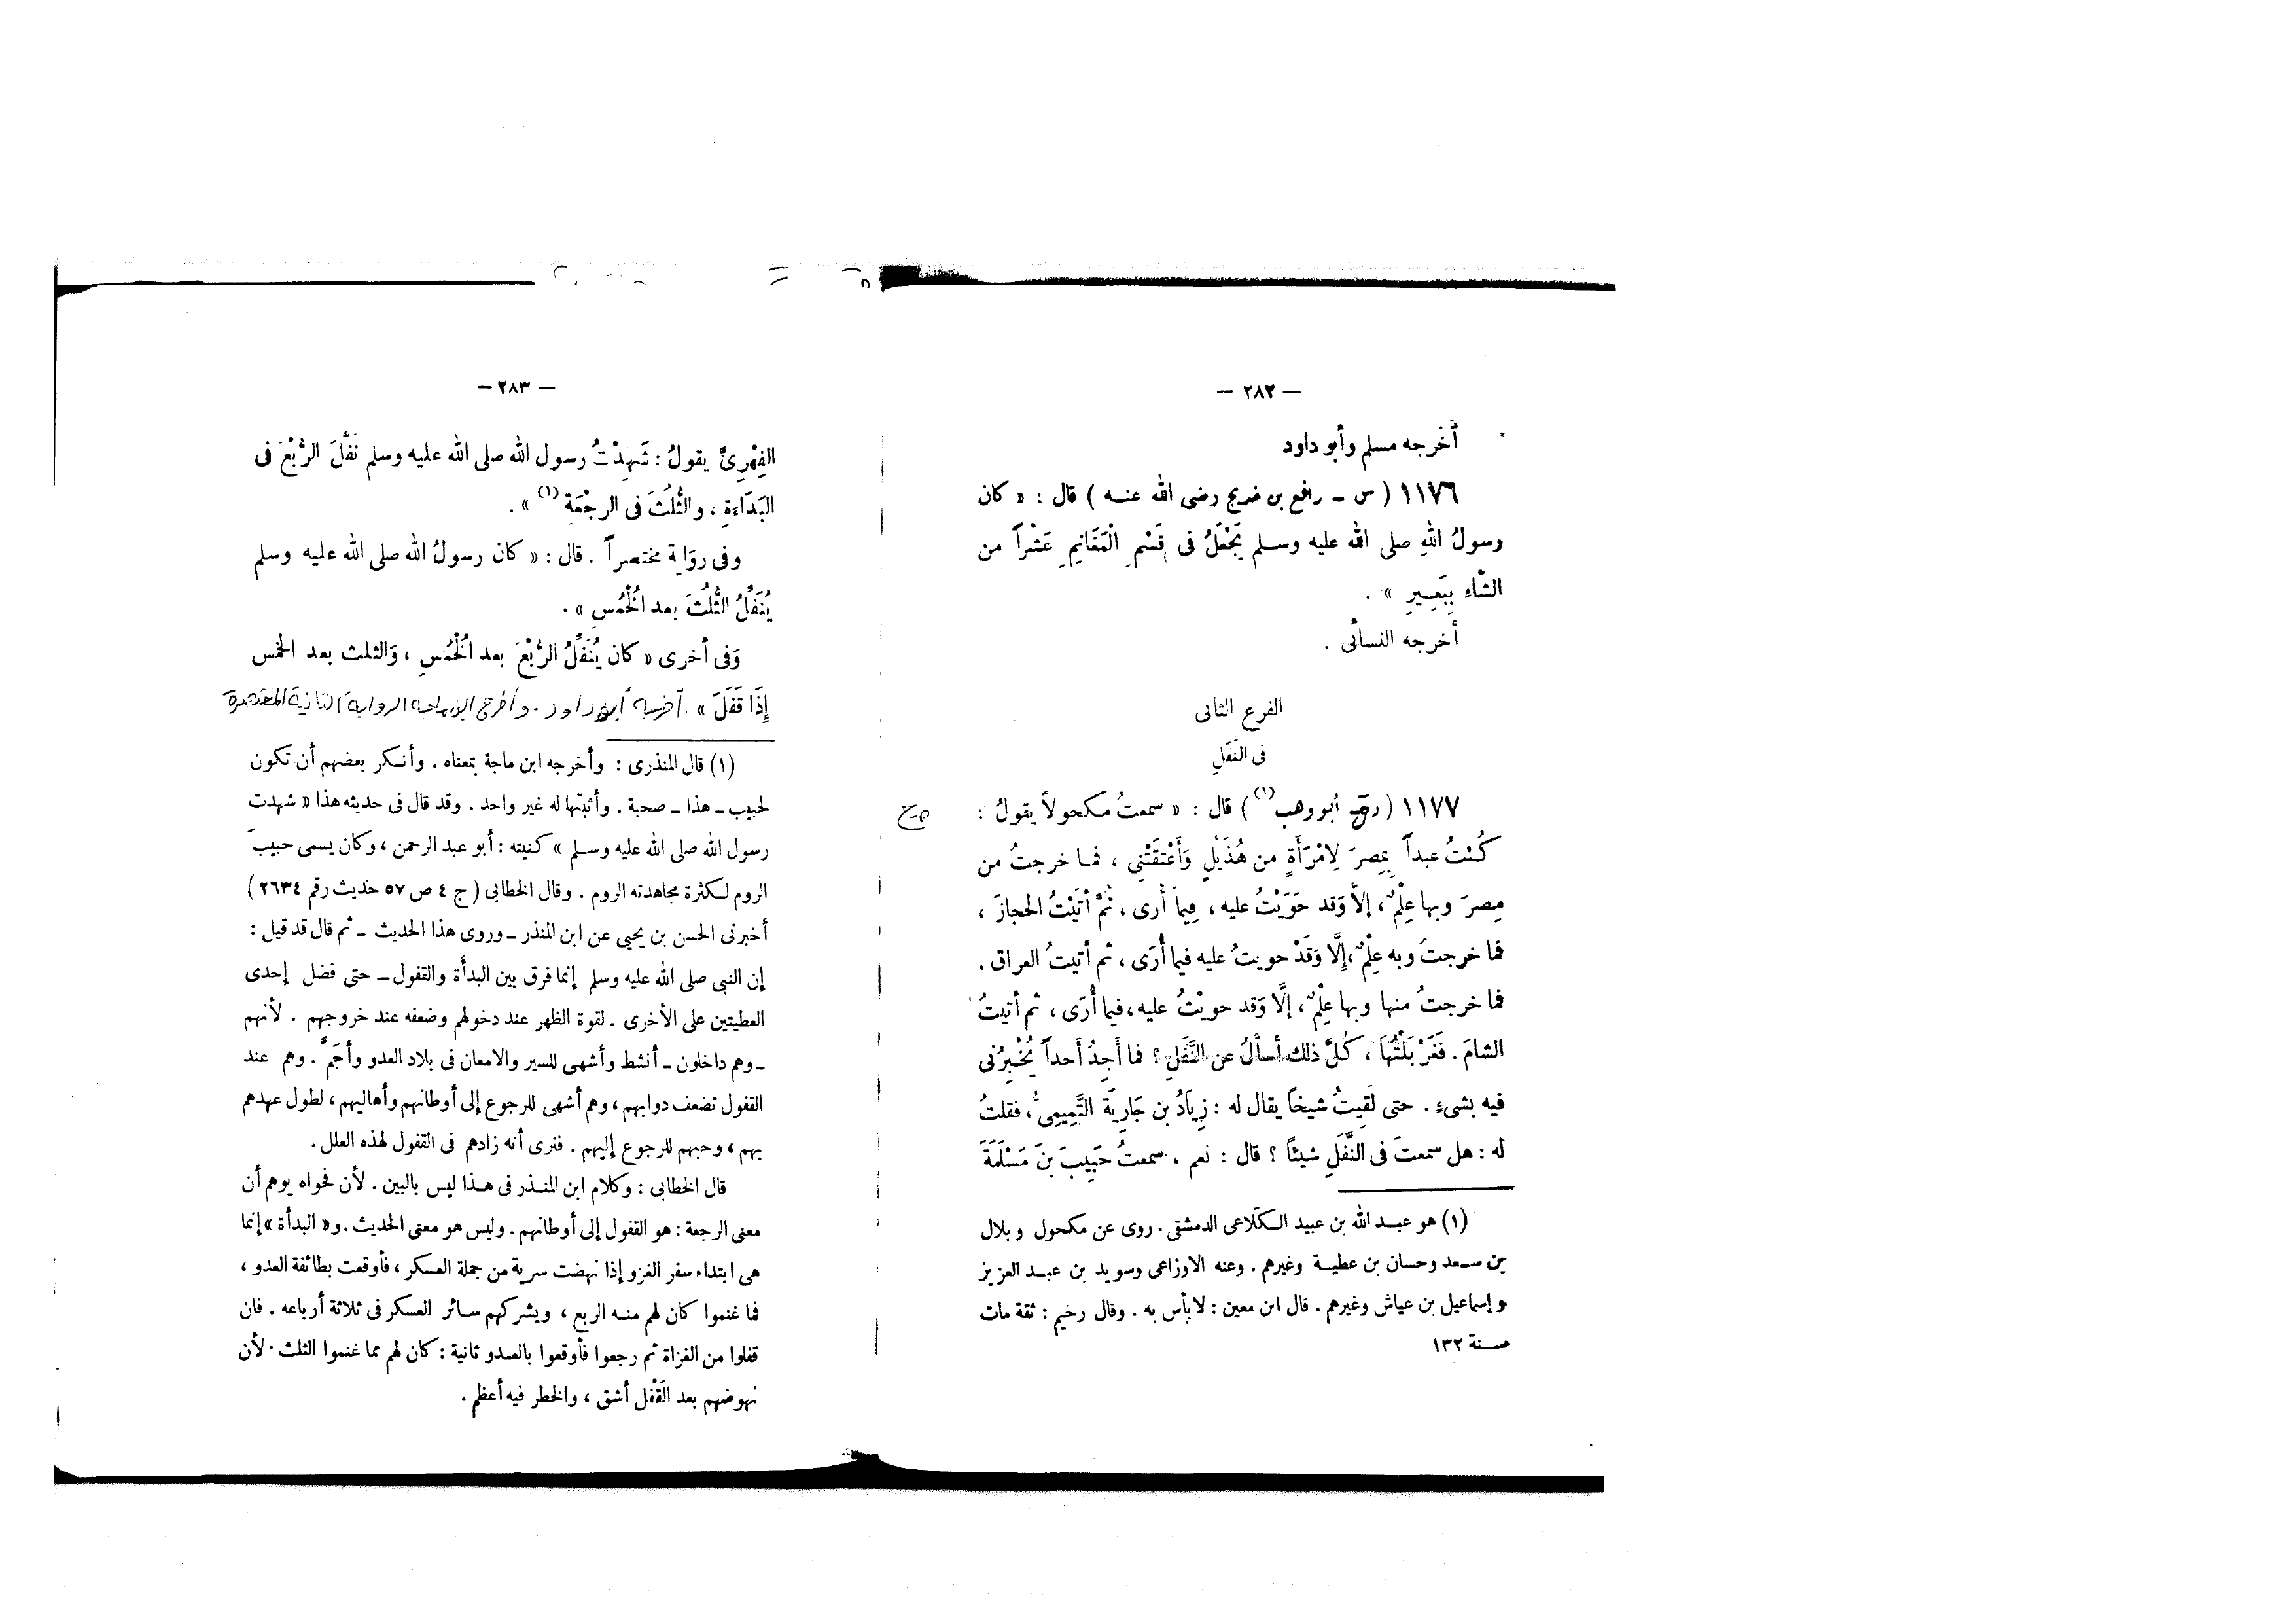 — ٢٨٢ —
أخرجه مسلم وأبو داود
١١٧٦ ( س ــ رافع بن خديج رضى الله عنه ) قال : « كان
رسولُ اللهِ صلى الله عليه وسلم يَجْعَلُ فى قَسْمِ الْمَغَانِمِ عَشْراً من
الشّاءِ بِبَعِيرٍ » .
أخرجه النسائى .
الفرع الثانى
فى النَّفَلِ
١١٧٧ ( أبو وهب (١) ) قال : « سمعتُ مكحولاً يقولُ :
كُنْتُ عبداً بِمِصرَ لِامْرَأَةٍ من هُذَيْلٍ وَأَعْتَقَتْنِى ، فما خرجتُ من
مِصرَ وبها عِلْمٌ ، إلاَّ وَقد حَوَيْتُ عليه ، فِيمَا أُرى ، ثُمَّ أتَيْتُ الحجازَ ،
فما خرجتُ وبه عِلْمٌ ، إِلَّا وَقَدْ حويتُ عليه فيما أُرَى ، ثم أتيتُ العراق .
فما خرجتُ منها وبها عِلْمٌ ، إلَّا وَقد حويْتُ عليه ، فيما أُرَى ، ثم أتيتُ
الشامَ . فَغَرْ بَلْتُهَا ، كُلَّ ذلك أسألُ عن النَّفَلِ ؟ فما أَجِدُ أَحداً يُخْبِرُنى
فيه بشىءٍ . حتى لَقِيتُ شيخاً يقال له : زِيَادُ بن جَارِيَةَ التَّمِيمِىُّ ، فقلتُ
له : هل سمعتَ فى النَّفَلِ شيئاً ؟ قال : نعم ، سمعتُ حَبِيبَ بنَ مَسْلَمَةَ
(١) هو عبد الله بن عبيد الكلاعى الدمشقى . روى عن مكحول وبلال
بن سعد وحسان بن عطية وغيرهم . وعنه الاوزاعى وسويد بن عبد العزيز
وإسماعيل بن عياش وغيرهم . قال ابن معين : لا بأس به . وقال رخيم : ثقة مات
سنة ١٣٢
— ٢٨٣ —
الفِهْرِىَّ يقولُ : شَهِدْتُ رسول الله صلى الله عليه وسلم نَفَّلَ الرُّبْعَ فى
البَدَاءَةِ ، والثُّلُثَ فى الرجْعَةِ (١) » .
وفى رِوَاية مختصراً . قال : « كان رسولُ الله صلى الله عليه وسلم
يُنَفِّلُ الثُّلُثَ بعد الْخُمُسِ » .
وَفى أخرى « كان يُنَفِّلُ الرُّبْعَ بعد الْخُمُسِ ، وَالثلث بعد الخمس
إِذَا قَفَلَ » . أخرجه أبو داود . وأخرج ابن ماجه الرواية الثانية المختصرة
(١) قال المنذرى : وأخرجه ابن ماجة بمعناه . وأنكر بعضهم أن تكون
لحبيب ــ هذا ــ صحبة . وأثبتها له غير واحد . وقد قال فى حديثه هذا « شهدت
رسول الله صلى الله عليه وسلم » كنيته : أبو عبد الرحمن ، وكان يسمى حبيبَ
الروم لكثرة مجاهدته الروم . وقال الخطابى ( ج ٤ ص ٥٧ حديث رقم ٢٦٣٤ )
أخبرنى الحسن بن يحيى عن ابن المنذر ــ وروى هذا الحديث ــ ثم قال قد قيل :
إن النبى صلى الله عليه وسلم إنما فرق بين البدأة والقفول ــ حتى فضل إحدى
العطيتين على الأخرى . لقوة الظهر عند دخولهم وضعفه عند خروجهم . لأنهم
ــ وهم داخلون ــ أنشط وأشهى للسير والامعان فى بلاد العدو وأجَمُّ . وهم عند
القفول تضعف دوابهم ، وهم أشهى للرجوع إلى أوطانهم وأهاليهم ، لطول عهدهم
بهم ، وحبهم للرجوع إليهم . فنرى أنه زادهم فى القفول لهذه العلل .
قال الخطابى : وكلام ابن المنذر فى هذا ليس بالبين . لأن فحواه يوهم أن
معنى الرجعة : هو القفول إلى أوطانهم . وليس هو معنى الحديث . و« البدأة » إنما
هى ابتداء سفر الغزو إذا نهضت سرية من جملة العسكر ، فأوقعت بطائفة العدو ،
فما غنموا كان لهم منه الربع ، ويشركهم سائر العسكر فى ثلاثة أرباعه . فان
قفلوا من الغزاة ثم رجعوا فأوقعوا بالعدو ثانية : كان لهم مما غنموا الثلث . لأن
نهوضهم بعد القَفْل أشق ، والخطر فيه أعظم .